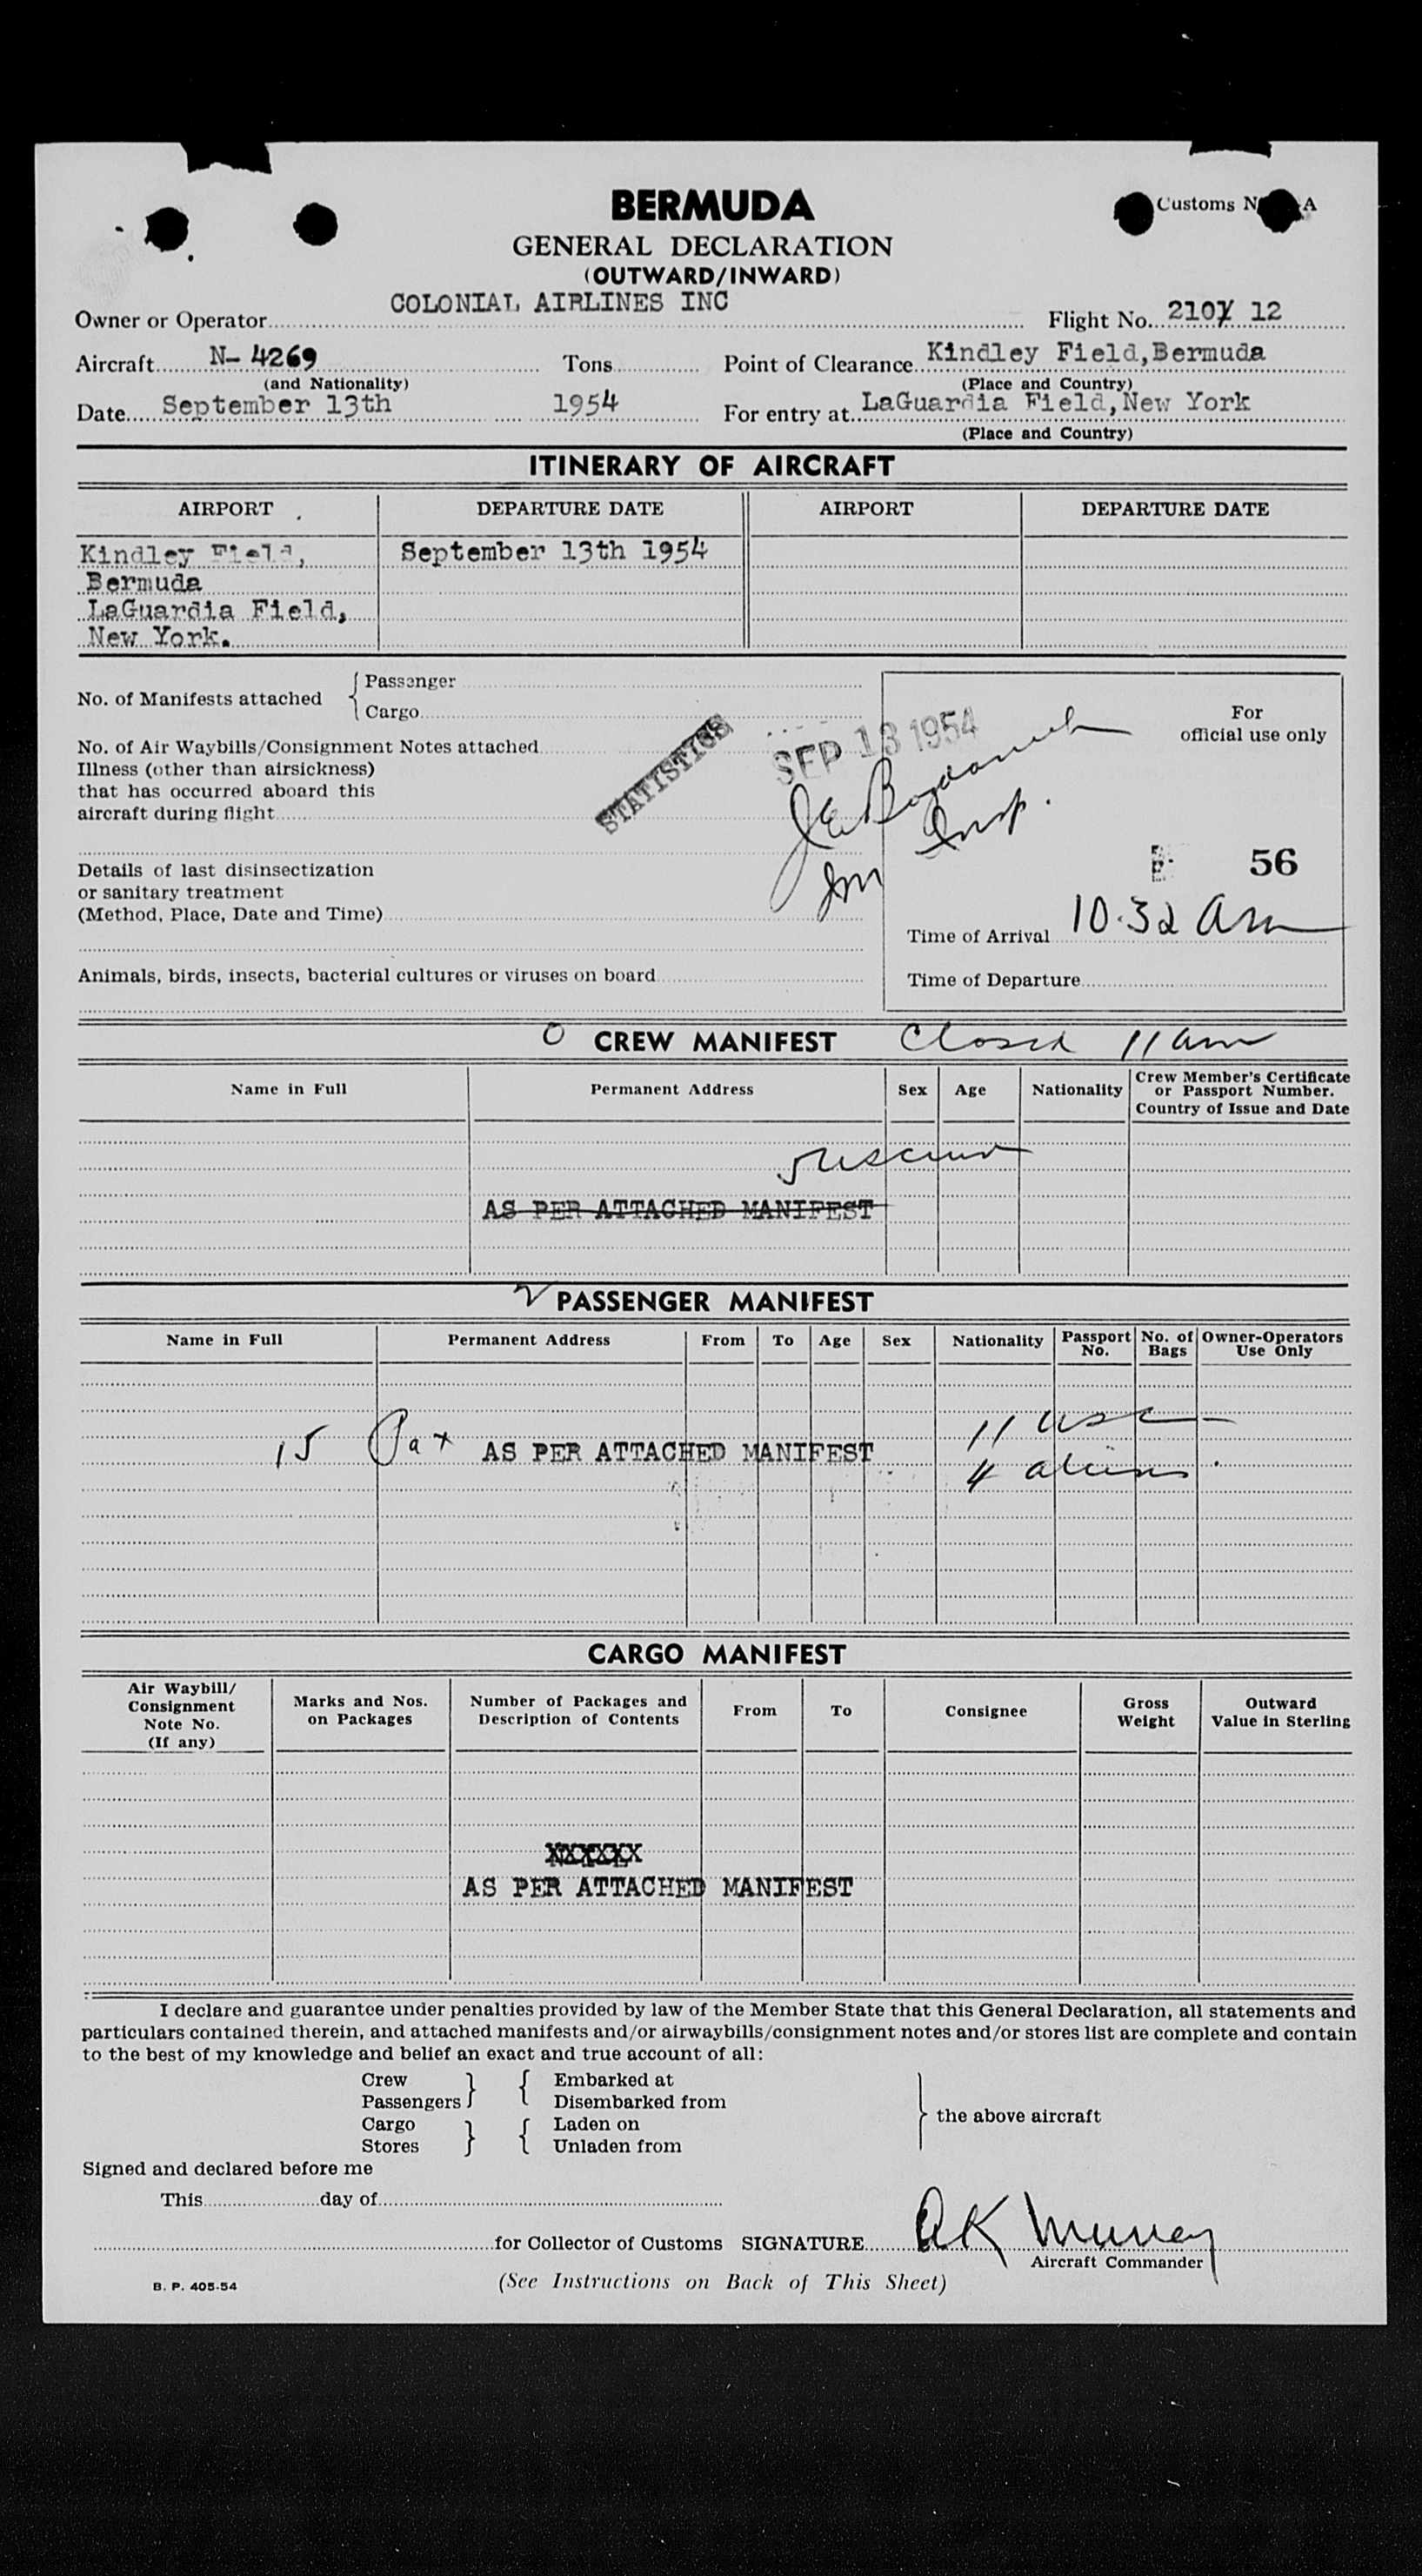 BERMUDA
Customs N A
GENERAL DECLARATION
(OUTWARD/INWARD)
Owner or Operator COLONIAL AIRLINES INC Flight No. 210 12
Aircraft N- 4269 Tons Point of Clearance Kindley Field, Bermuda
(and Nationality) (Place and Country)
Date September 13th 1954 For entry at LaGuardia Field, New York
(Place and Country)
ITINERARY OF AIRCRAFT
AIRPORT DEPARTURE DATE AIRPORT DEPARTURE DATE
Kindley Field, September 13th 1954
Bermuda
LaGuardia Field,
New York.
No. of Manifests attached { Passenger
Cargo
No. of Air Waybills/Consignment Notes attached
STATISTICS
SEP 13 1954
For
official use only
Illness (other than airsickness)
that has occurred aboard this
aircraft during flight
Insp.
Imm
56
Details of last disinsectization
or sanitary treatment
(Method, Place, Date and Time)
Time of Arrival 10.32 am
Animals, birds, insects, bacterial cultures or viruses on board
Time of Departure
0 CREW MANIFEST Closed 11 am
Name in Full Permanent Address Sex Age Nationality Crew Member's Certificate
or Passport Number.
Country of Issue and Date
AS PER ATTACHED MANIFEST
PASSENGER MANIFEST
Name in Full Permanent Address From To Age Sex Nationality Passport No. No. of Bags Owner-Operators Use Only
11 usc
15 Pax AS PER ATTACHED MANIFEST
4 aliens
CARGO MANIFEST
Air Waybill/
Consignment
Note No.
(If any)
Marks and Nos.
on Packages
Number of Packages and
Description of Contents
From To Consignee
Gross
Weight
Outward
Value in Sterling
XXXXXX
AS PER ATTACHED MANIFEST
I declare and guarantee under penalties provided by law of the Member State that this General Declaration, all statements and
particulars contained therein, and attached manifests and/or airwaybills/consignment notes and/or stores list are complete and contain
to the best of my knowledge and belief an exact and true account of all:
Crew } { Embarked at
Passengers Disembarked from
Cargo } { Laden on
Stores Unladen from
} the above aircraft
Signed and declared before me
This day of
for Collector of Customs SIGNATURE AK Murray
Aircraft Commander
B. P. 405-54
(See Instructions on Back of This Sheet)